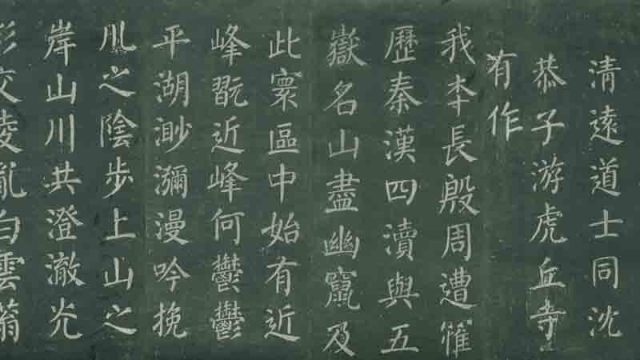 清遠道士同沈
恭子游虎丘寺
有作
我本長殷周遭罹
歷秦漢四瀆與五
嶽名山盡幽竄及
此寰區中始有近
峰翫近峰何鬱鬱
平湖渺瀰漫吟挽
川之陰步上山之
岸山川共澄澈光
彩交凌亂白雲蓊